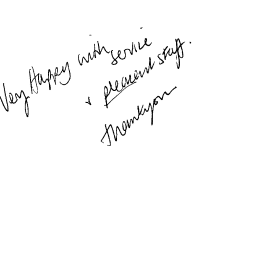 Very Happy with service
+ pleasant staff.
Thankyou